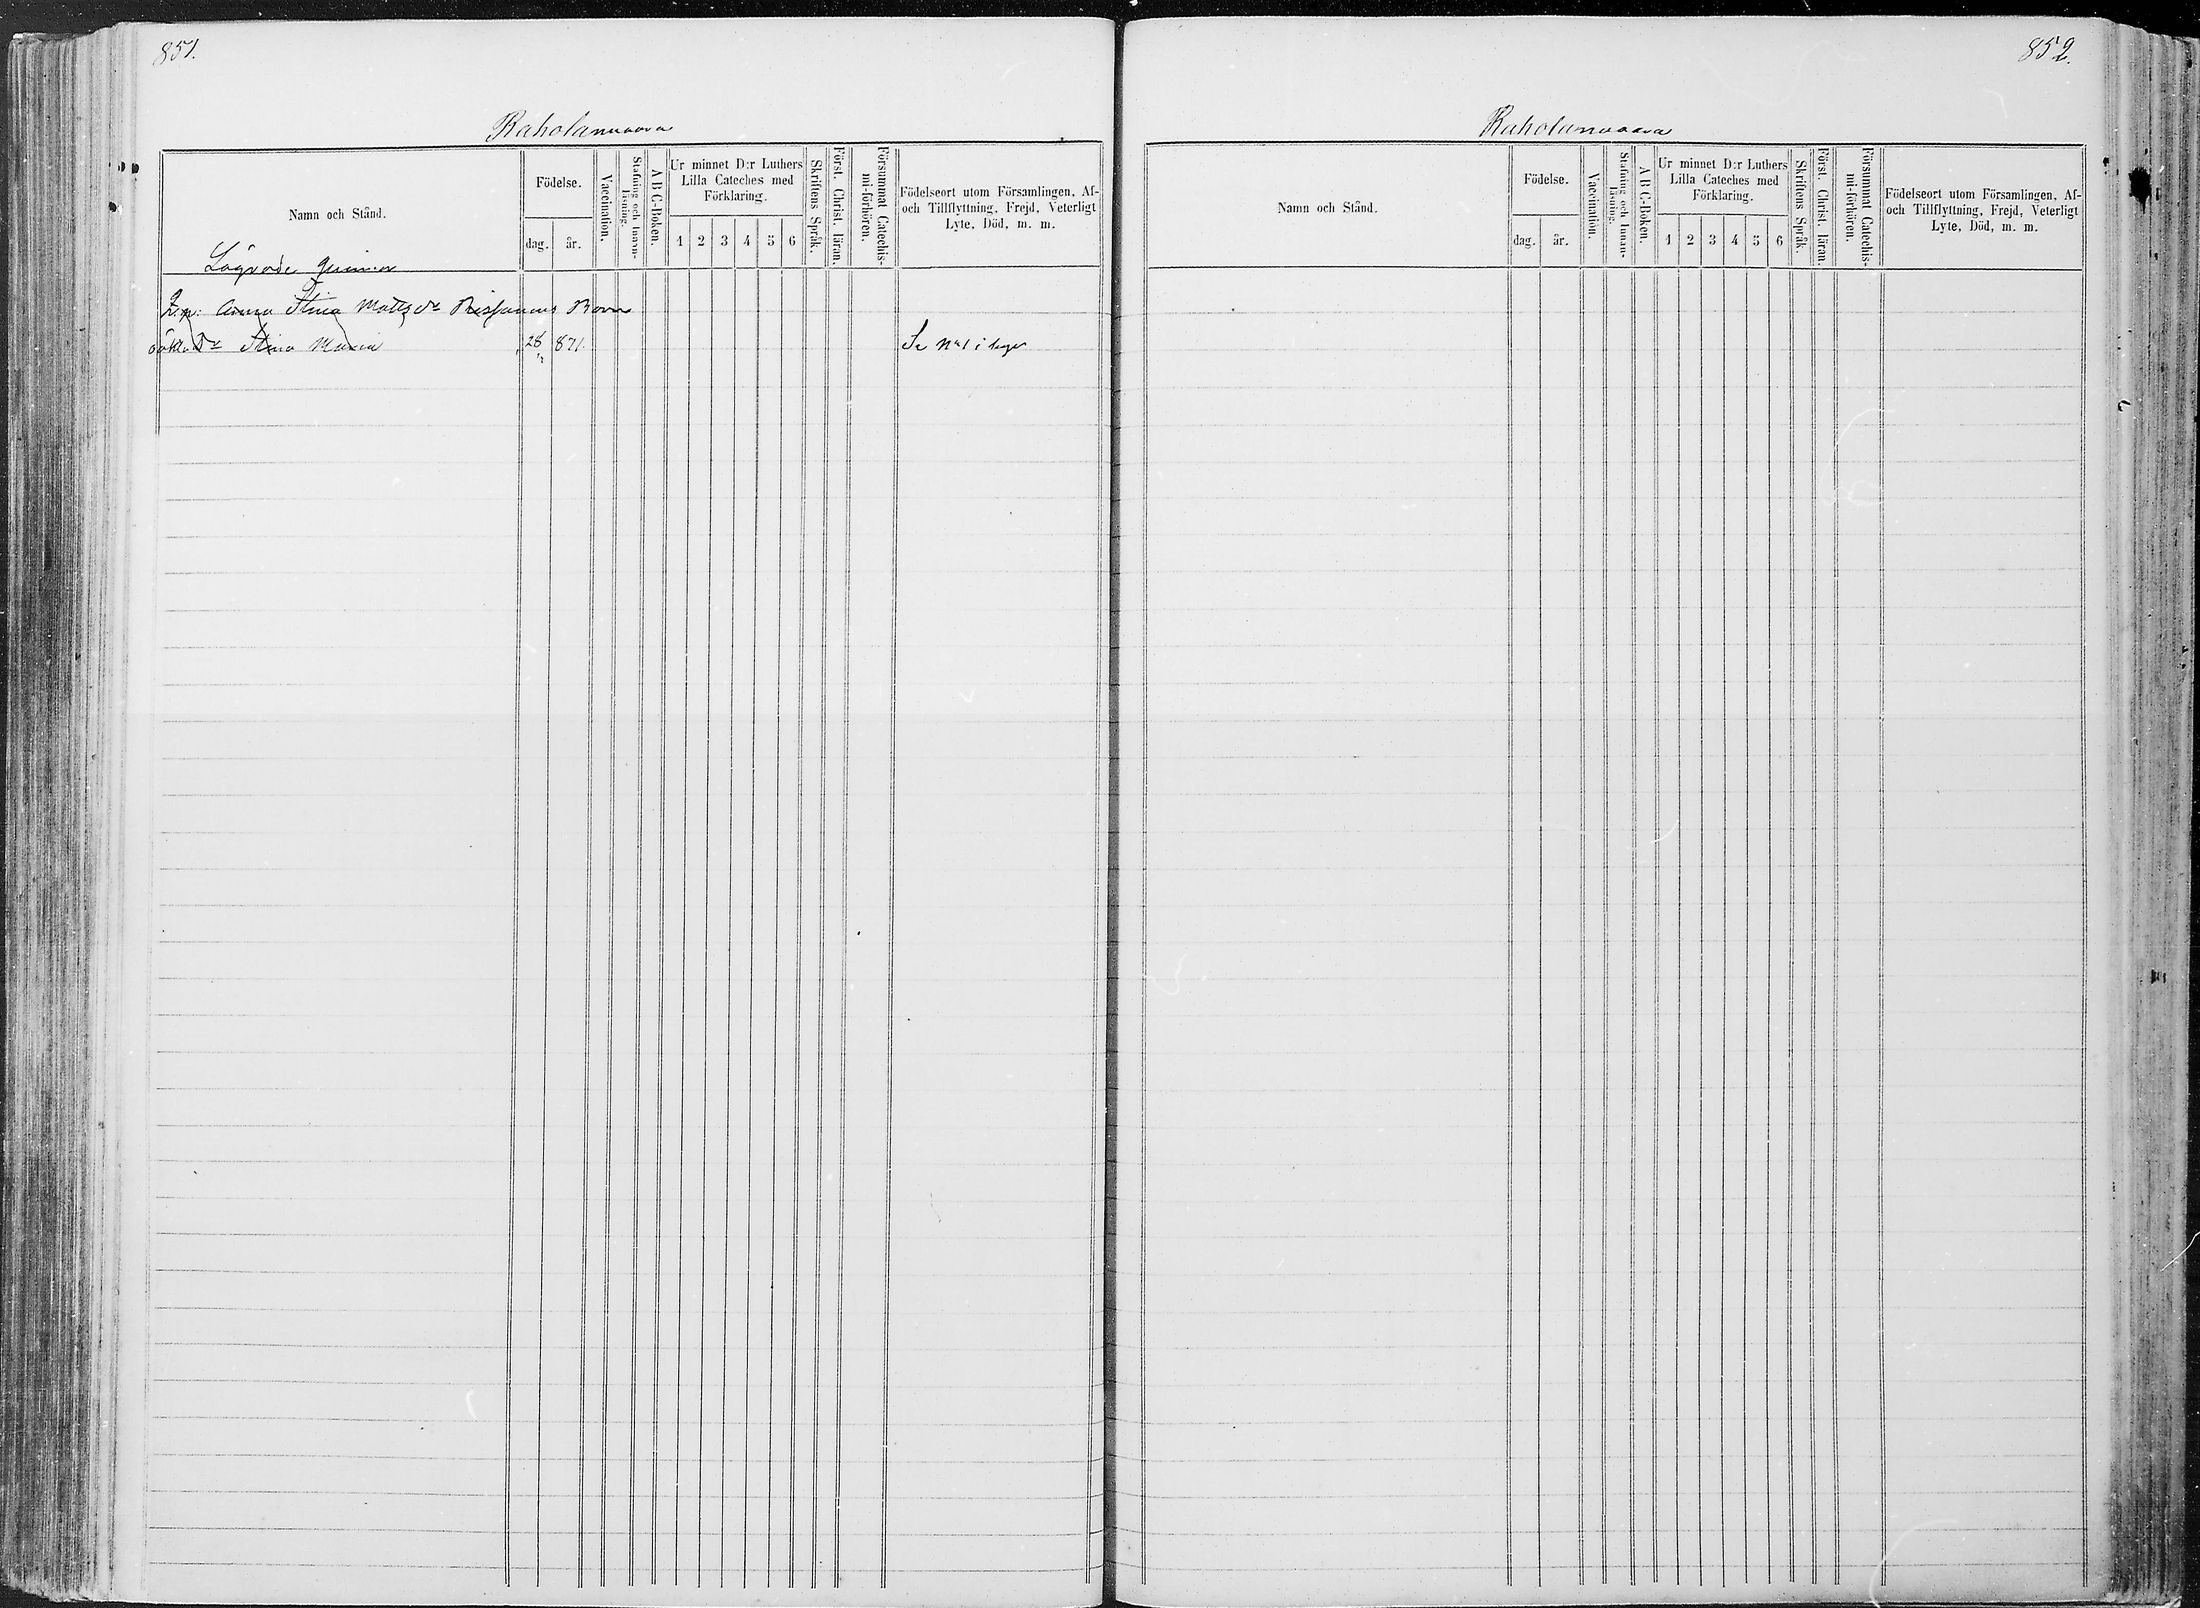 851.
Raholanvaara
Namn och Stånd.
Födelse.
dag. år.
Vaccination.
Stafning och Innan-
läsning.
A B C-Boken.
Ur minnet D:r Luthers
Lilla Cateches med
Förklaring.
1 2 3 4 5 6
Skriftens Språk.
Först. Christ. läran.
Försummat Catechis-
mi-förhören.
Födelseort utom Församlingen, Af-
och Tillflyttning, Frejd, Veterligt
Lyte, Död, m. m.
Lägrade quinnor
Anna Stina Mattsdr Barn
oäkta Dr Stina Maria 28 871. Se No 1 i byn
852.
Raholanvaara
Namn och Stånd.
Födelse.
dag. år.
Vaccination.
Stafning och Innan-
läsning.
A B C-Boken.
Ur minnet D:r Luthers
Lilla Cateches med
Förklaring.
1 2 3 4 5 6
Skriftens Språk.
Först. Christ. läran.
Försummat Catechis-
mi-förhören.
Födelseort utom Församlingen, Af-
och Tillflyttning, Frejd, Veterligt
Lyte, Död, m. m.